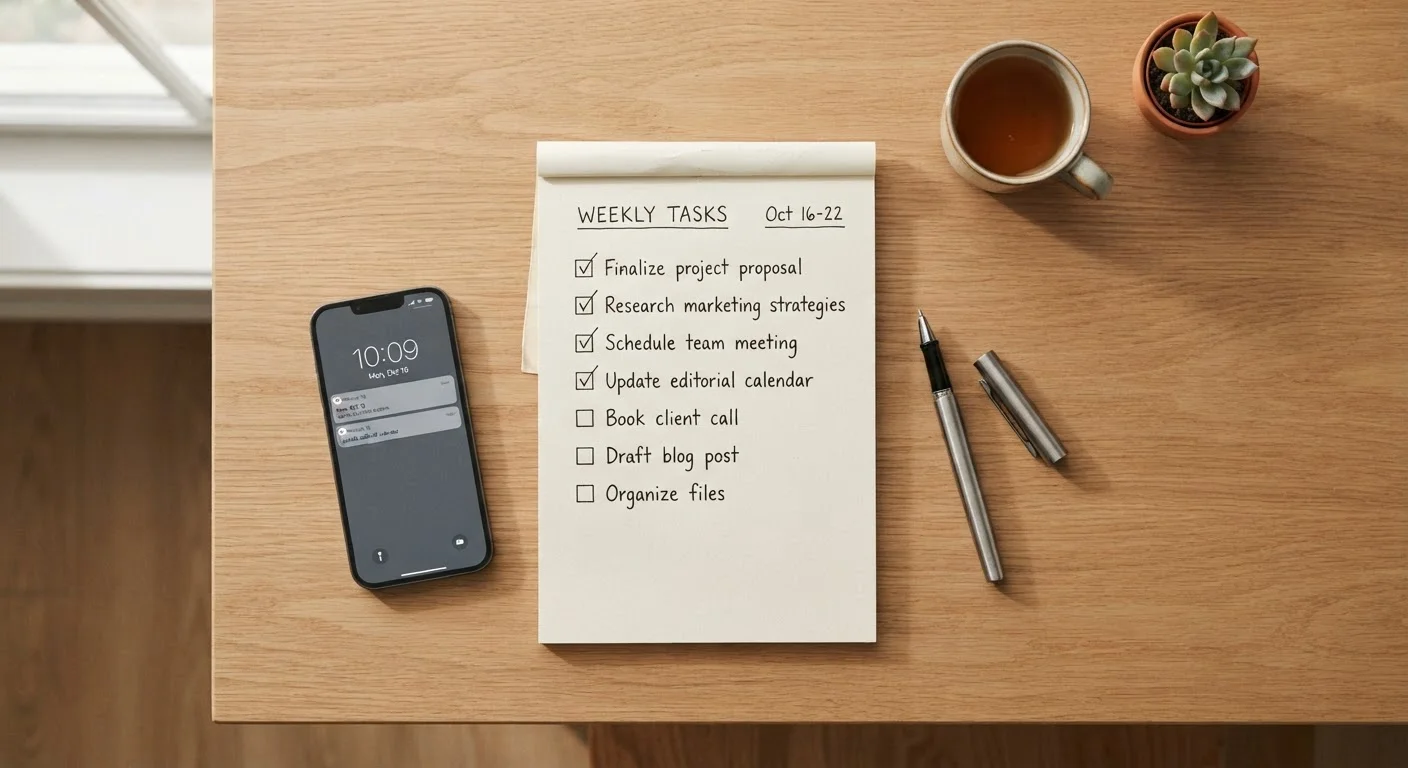 WEEKLY TASKS Oct 16-22
Finalize project proposal
Research marketing strategies
Schedule team meeting
Update editorial calendar
Book client call
Draft blog post
Organize files
10:09
16